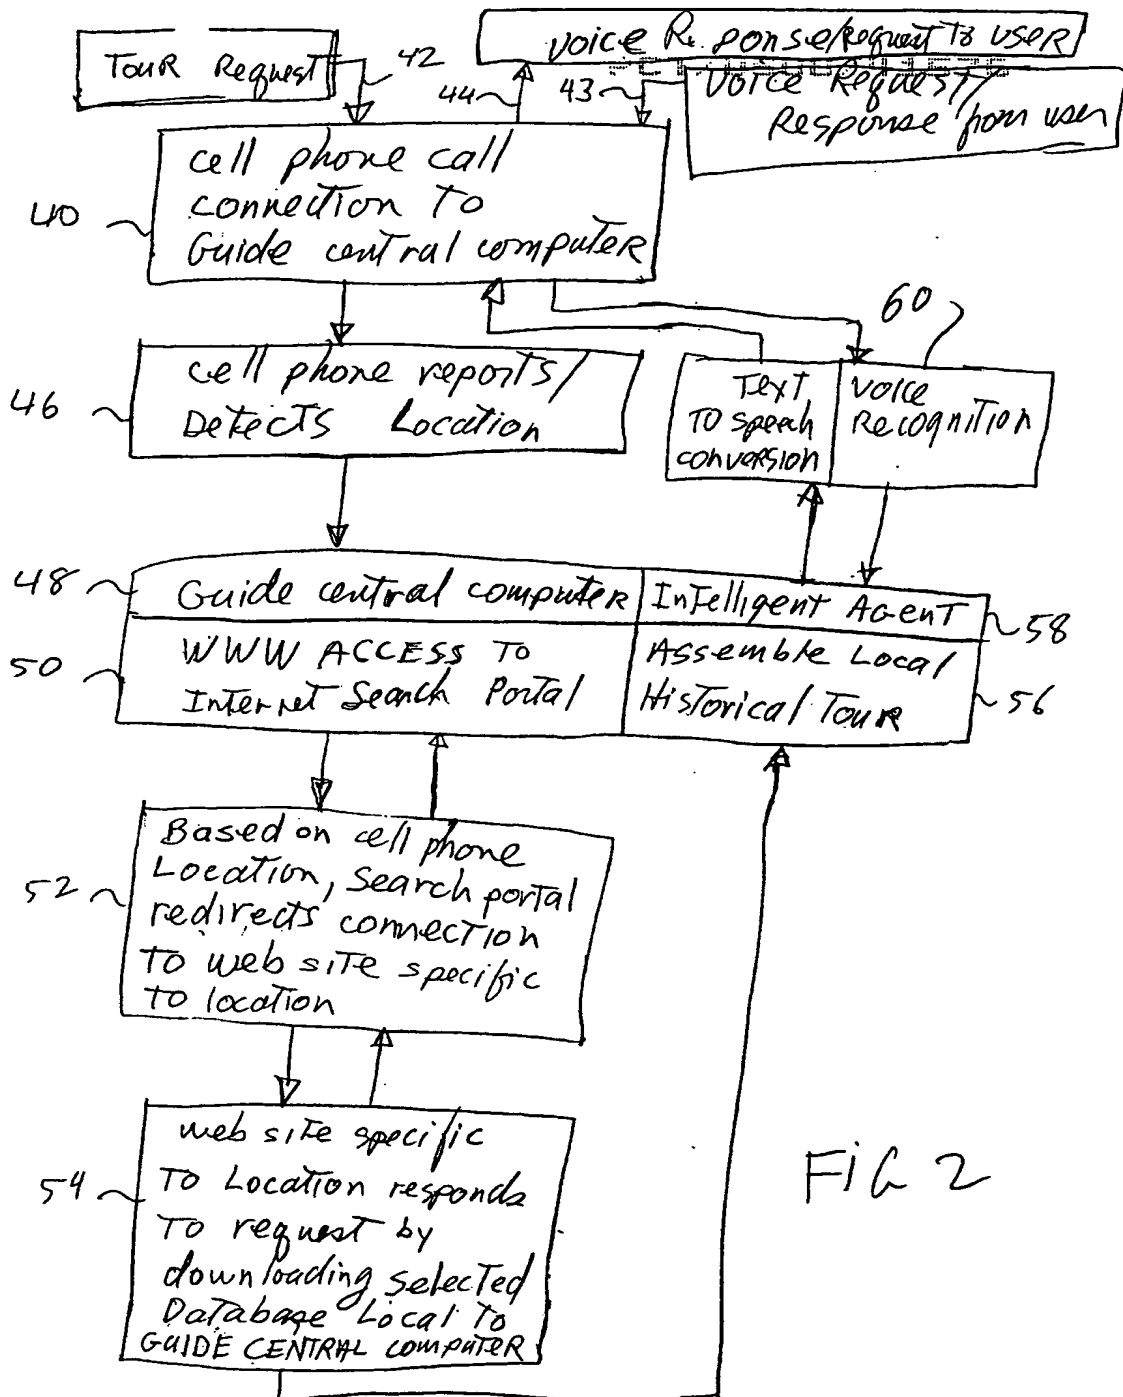 Tour Request
42
Voice R. ponse/Request to user
44
43
Voice Request/
Response from user
40
cell phone call
connection to
Guide central computer
46
cell phone reports/
Detects Location
60
Text
To speech
conversion
Voice
Recognition
48
Guide central computer
Intelligent Agent
58
50
WWW Access to
Internet Search Portal
Assemble Local
Historical Tour
56
52
Based on cell phone
Location, Search portal
redirects connection
to web site specific
to location
54
web site specific
To Location responds
To request by
downloading selected
Database Local to
GUIDE CENTRAL computer
FIG 2